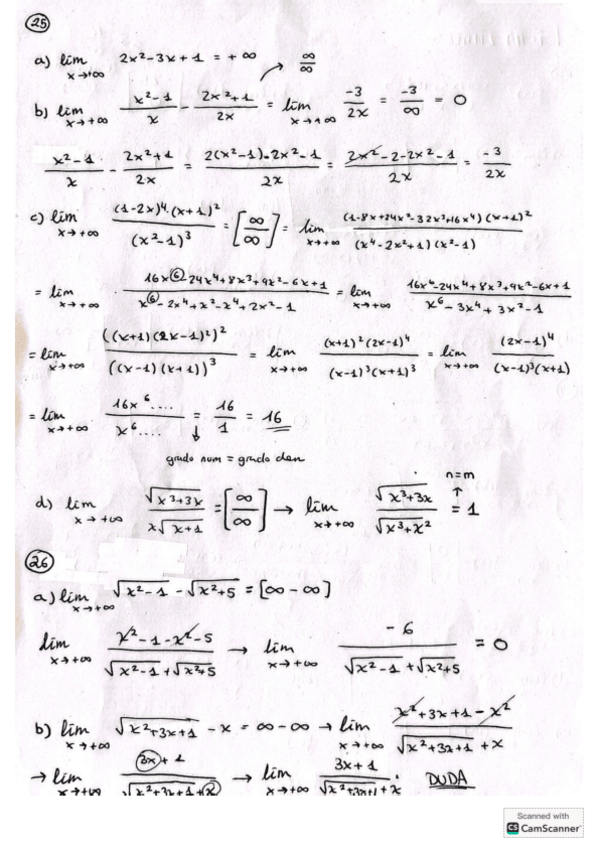 25
a) lím x→+∞ 2x²-3x+1 = +∞ ∞/∞
b) lím x→+∞ (x²-1)/x - (2x²+1)/2x = lím x→+∞ -3/2x = -3/∞ = 0
(x²-1)/x - (2x²+1)/2x = (2(x²-1)-2x²-1)/2x = (2x²-2-2x²-1)/2x = -3/2x
c) lím x→+∞ ((1-2x)⁴·(x+1)²)/(x²-1)³ = [∞/∞] = lím x→+∞ ((1-8x+24x²-32x³+16x⁴)(x+1)²)/((x⁴-2x²+1)(x²-1))
= lím x→+∞ (16x⁶-24x⁴+8x³+9x²-6x+1)/(x⁶-2x⁴+x²-x⁴+2x²-1) = lím x→+∞ (16x⁶-24x⁴+8x³+9x²-6x+1)/(x⁶-3x⁴+3x²-1)
= lím x→+∞ ((x+1)(2x-1)²)²/((x-1)(x+1))³ = lím x→+∞ ((x+1)²(2x-1)⁴)/((x-1)³(x+1)³) = lím x→+∞ (2x-1)⁴/((x-1)³(x+1))
= lím x→+∞ 16x⁶..../x⁶.... = 16/1 = 16
grado num = grado den
n=m
d) lím x→+∞ √(x³+3x)/(x√(x+1)) = [∞/∞] → lím x→+∞ √(x³+3x)/√(x³+x²) = 1
26
a) lím x→+∞ √(x²-1) - √(x²+5) = [∞-∞]
lím x→+∞ (x²-1-x²-5)/(√(x²-1)+√(x²+5)) → lím x→+∞ -6/(√(x²-1)+√(x²+5)) = 0
b) lím x→+∞ √(x²+3x+1) - x = ∞-∞ → lím x→+∞ (x²+3x+1-x²)/(√(x²+3x+1)+x)
→ lím x→+∞ (3x+1)/(√(x²+3x+1)+x) → lím x→+∞ (3x+1)/(√(x²+3x+1)+x) DUDA
Scanned with
CS CamScanner